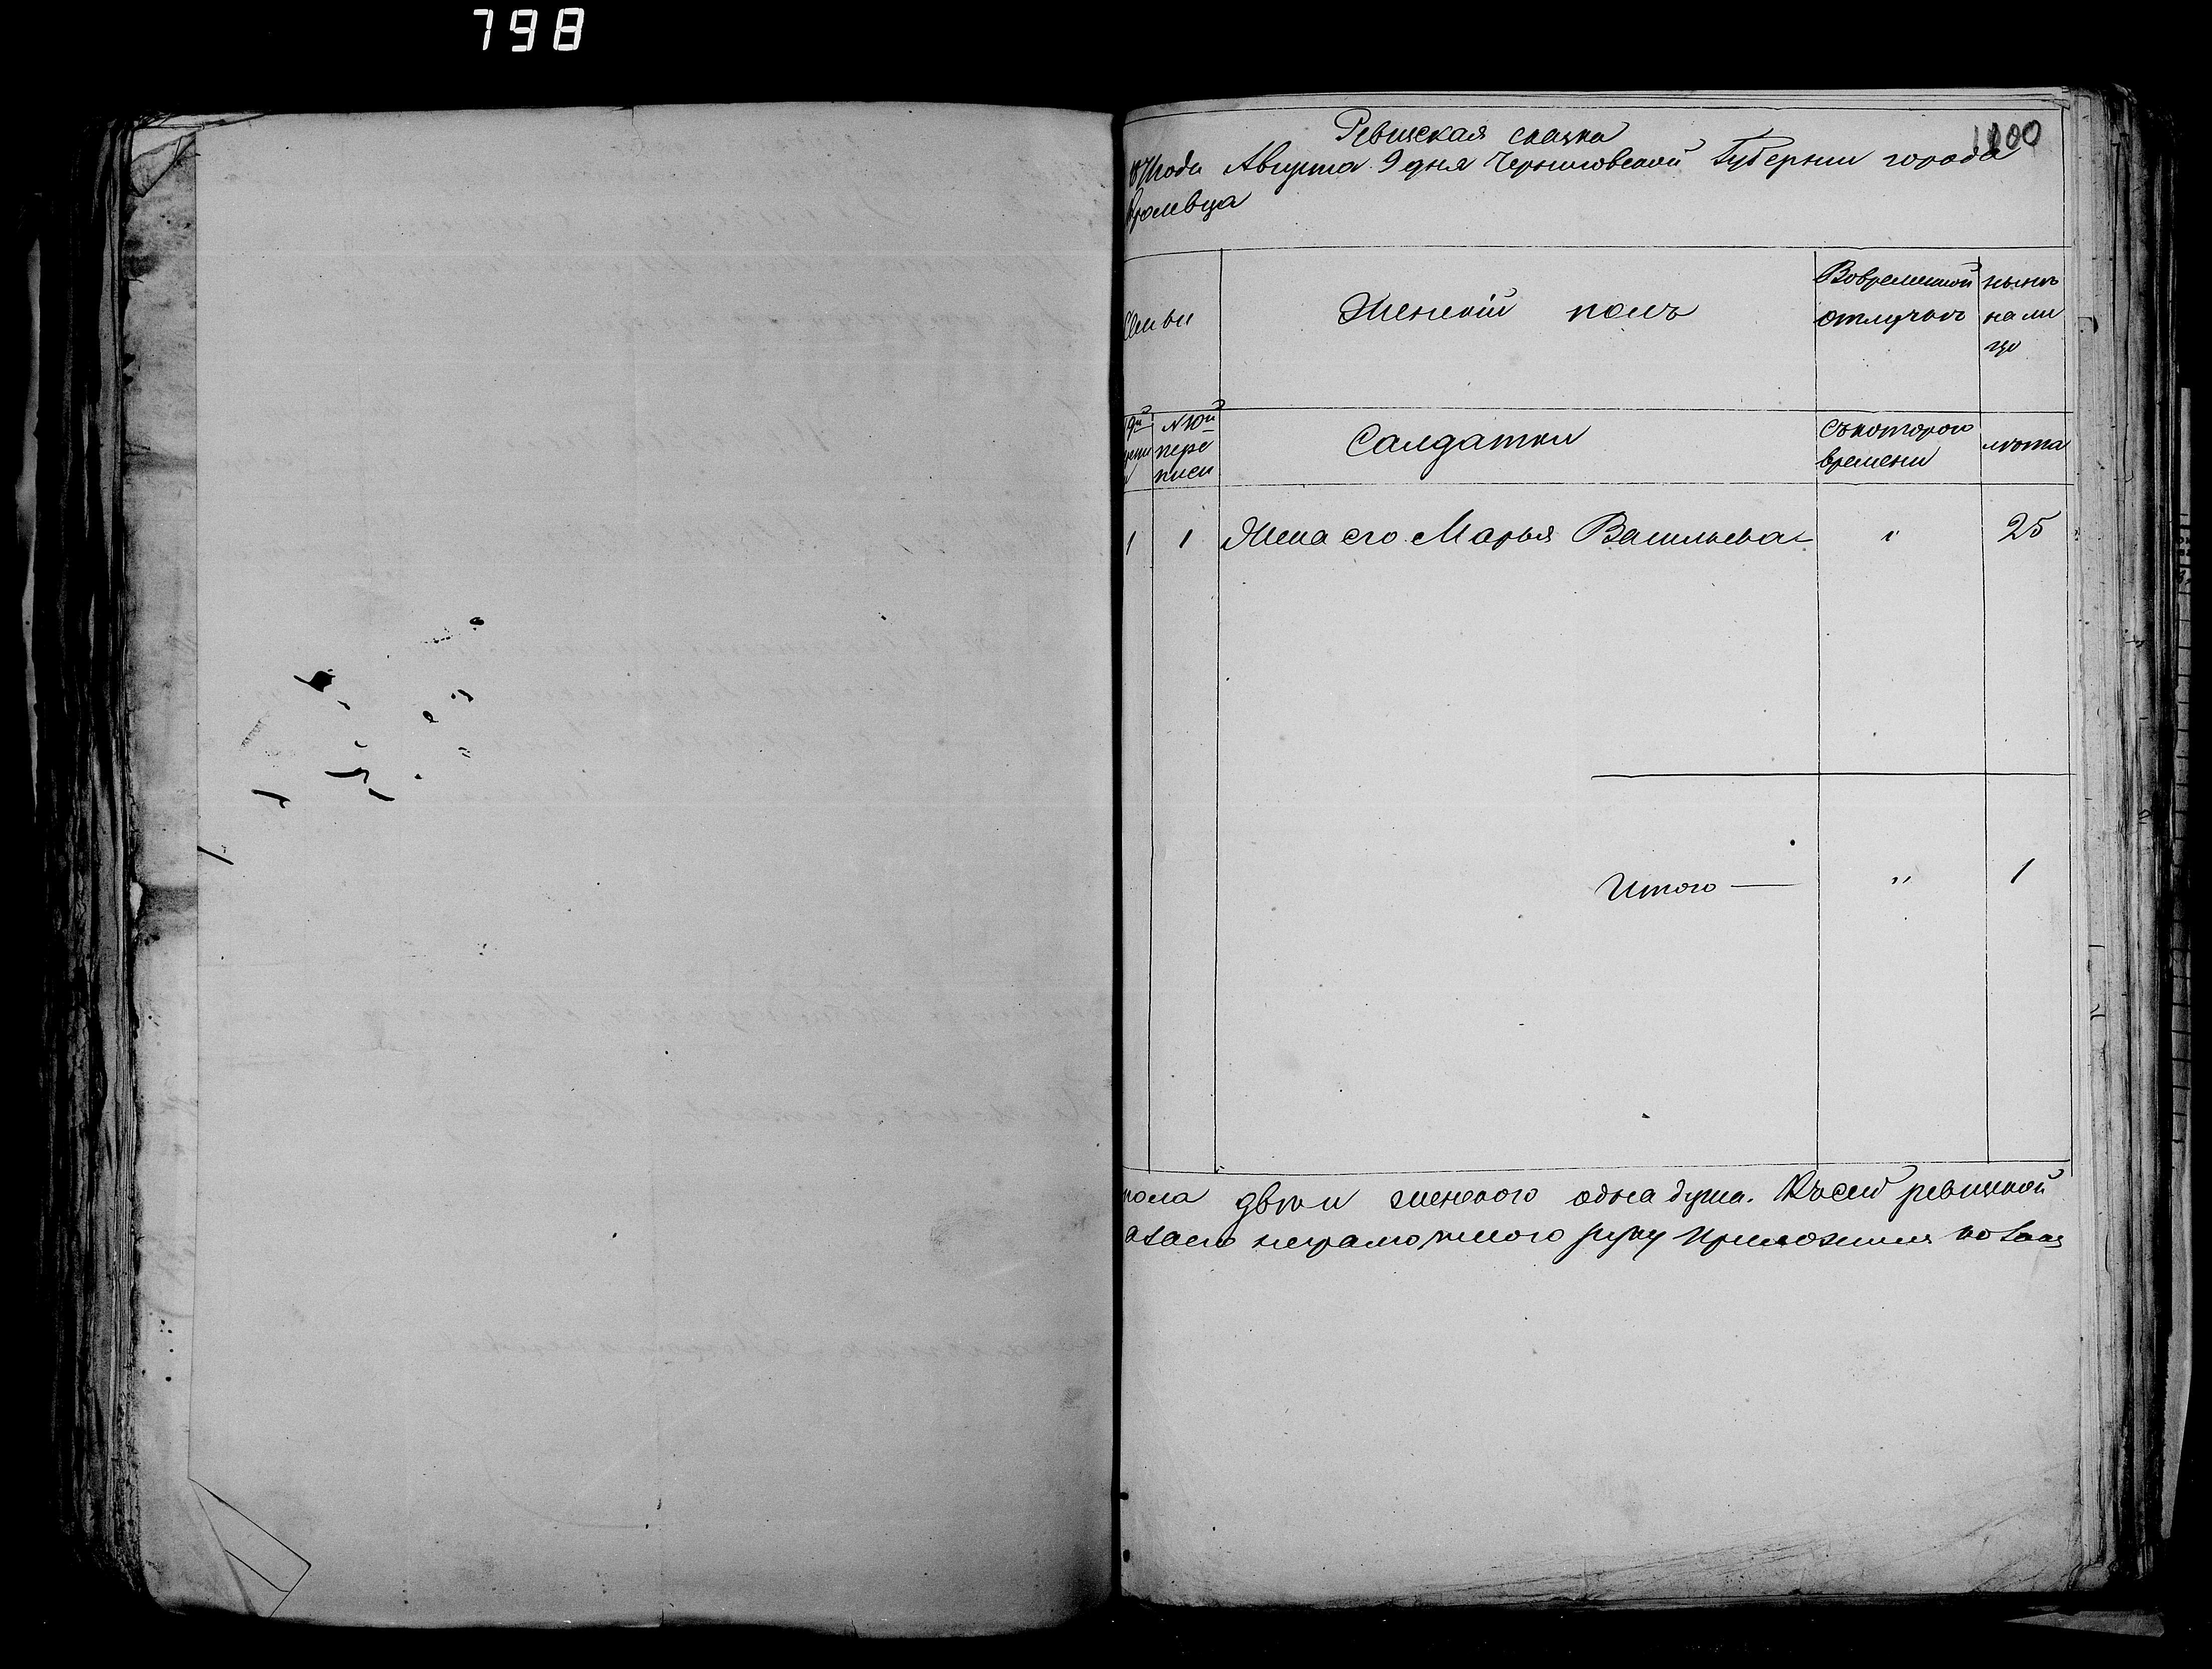 798
1100
Ревизская сказка
года Августа 9 дня Черниговской Губернии города
Кролевца
Семьи
Женский полъ
Вовременной
отлучкѣ
нынѣ
на ли
цо
9й
№ 10й
пере
писи
Салдатки
съкоторого
времени
лѣта
1 1 Жена его Марья Васильева " 25
Итого — " 1
пола двѣ и женского одна душа. Късей ревизкой
неграмотного руку приложилъ